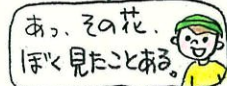 あっ、その花、
ぼく見たことある。